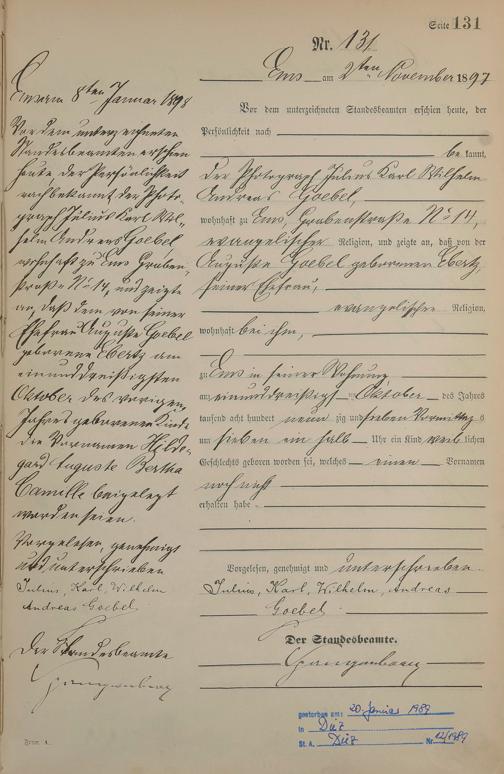 Seite 131
Nr. 131
Ems am 2ten November 1897
Vor dem unterzeichneten Standesbeamten erschien heute, der
Persönlichkeit nach
be kannt,
der Photograph Julius Karl Wilhelm
Andreas Goebel,
wohnhaft zu Ems Grabenstraße No 14,
evangelischer Religion, und zeigte an, daß von der
Auguste Goebel geborenen Ebertz
seiner Ehefrau,
evangelischer Religion,
wohnhaft bei ihm,
zu Ems in seiner Wohnung
am einunddreißig Oktober des Jahres
tausend acht hundert neun zig und sieben Vormittag s
um sieben ein halb Uhr ein Kind weib lichen
Geschlechts geboren worden sei, welches einen Vornamen
noch nicht
erhalten habe
Vorgelesen, genehmigt und unterschrieben
Julius, Karl, Wilhelm, Andreas
Goebel.
Der Standesbeamte.
Ems am 8ten Januar 1898
Vor dem unterzeichneten
Standesbeamten erschien
heute der Persönlichkeit
nach bekannt der Photo-
graph Julius Karl Wil-
helm Andreas Goebel
wohnhaft zu Ems Graben-
straße No 14, und zeigte
an, daß dem von seiner
Ehefrau Auguste Goebel
geborene Ebertz am
einunddreißigsten
Oktober des vorigen
Jahres geborenen Kinde
die Vornamen Hilde-
gard Auguste Bertha
Camilla beigelegt
worden seien.
Vorgelesen, genehmigt
und unterschrieben
Julius, Karl, Wilhelm
Andreas Goebel.
Der Standesbeamte
Form. A.
gestorben am: 20. Januar 1989
in Diez
St. A. Diez Nr. 12/1989